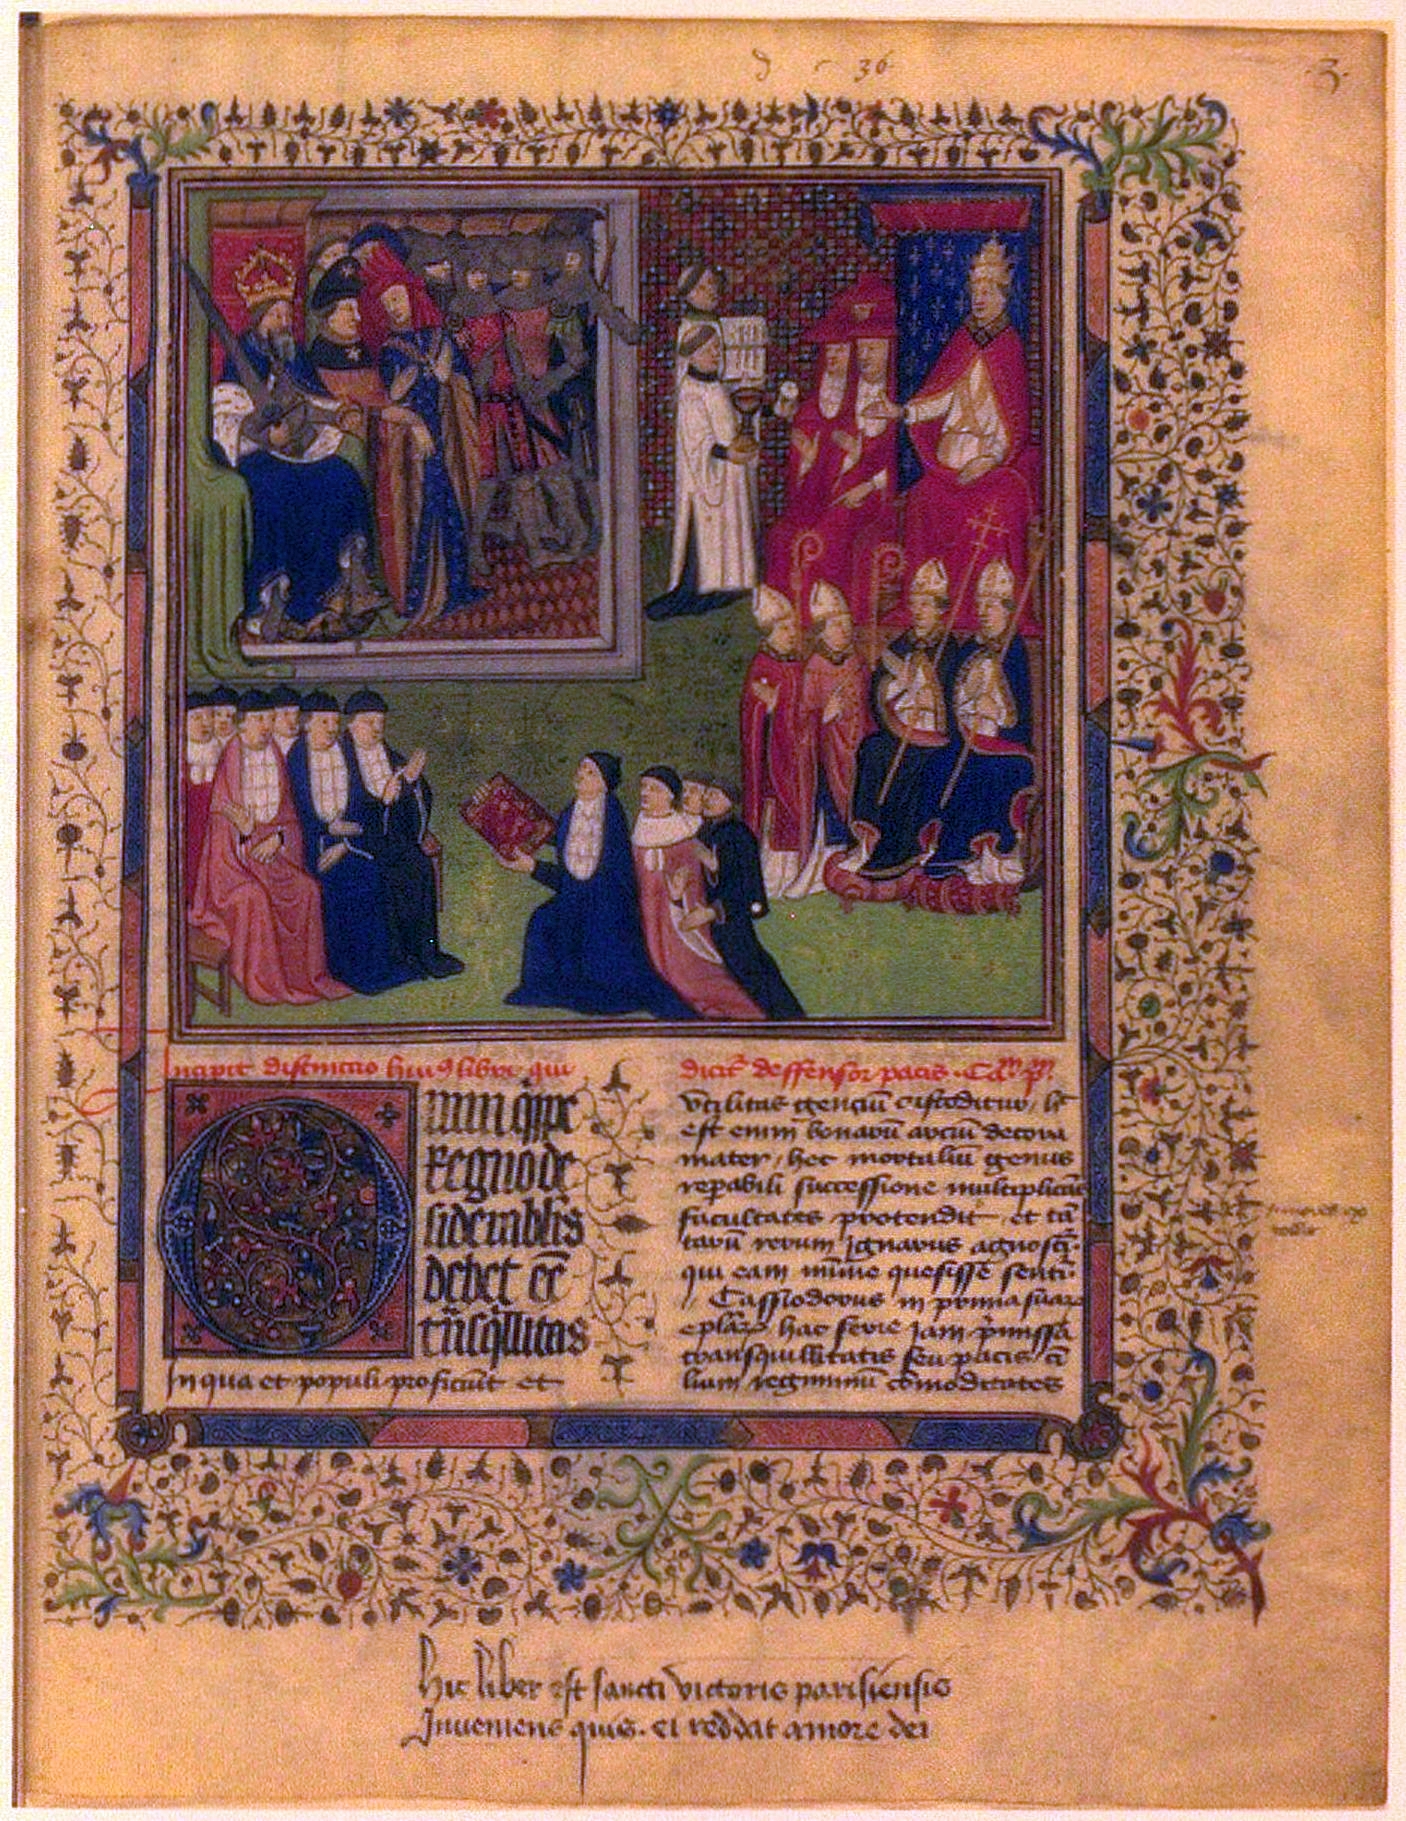 36
.3.
Incipit distinctio huius libri qui
dicitur deffensor pacis. Ca.m p.m
Omni quippe
Regno de
siderabilis
debet esse
tranquillitas
In qua et populi proficiunt et
Utilitas gencium custoditur, hec
est enim bonarum arcium decora
mater, hec mortalium genus
reparabili successione multiplicans
facultates protendit et tan
tarum rerum Ignarus agnoscitur
qui eam minime quesisse sentitur
Cassiodorus in prima suarum
epistolarum hac serie Jam premissa
transquillitatis seu pacis civi
lium regiminum comoditates
Hic liber est sancti victoris parisiensis
Inveniens quis. ei reddat amore dei